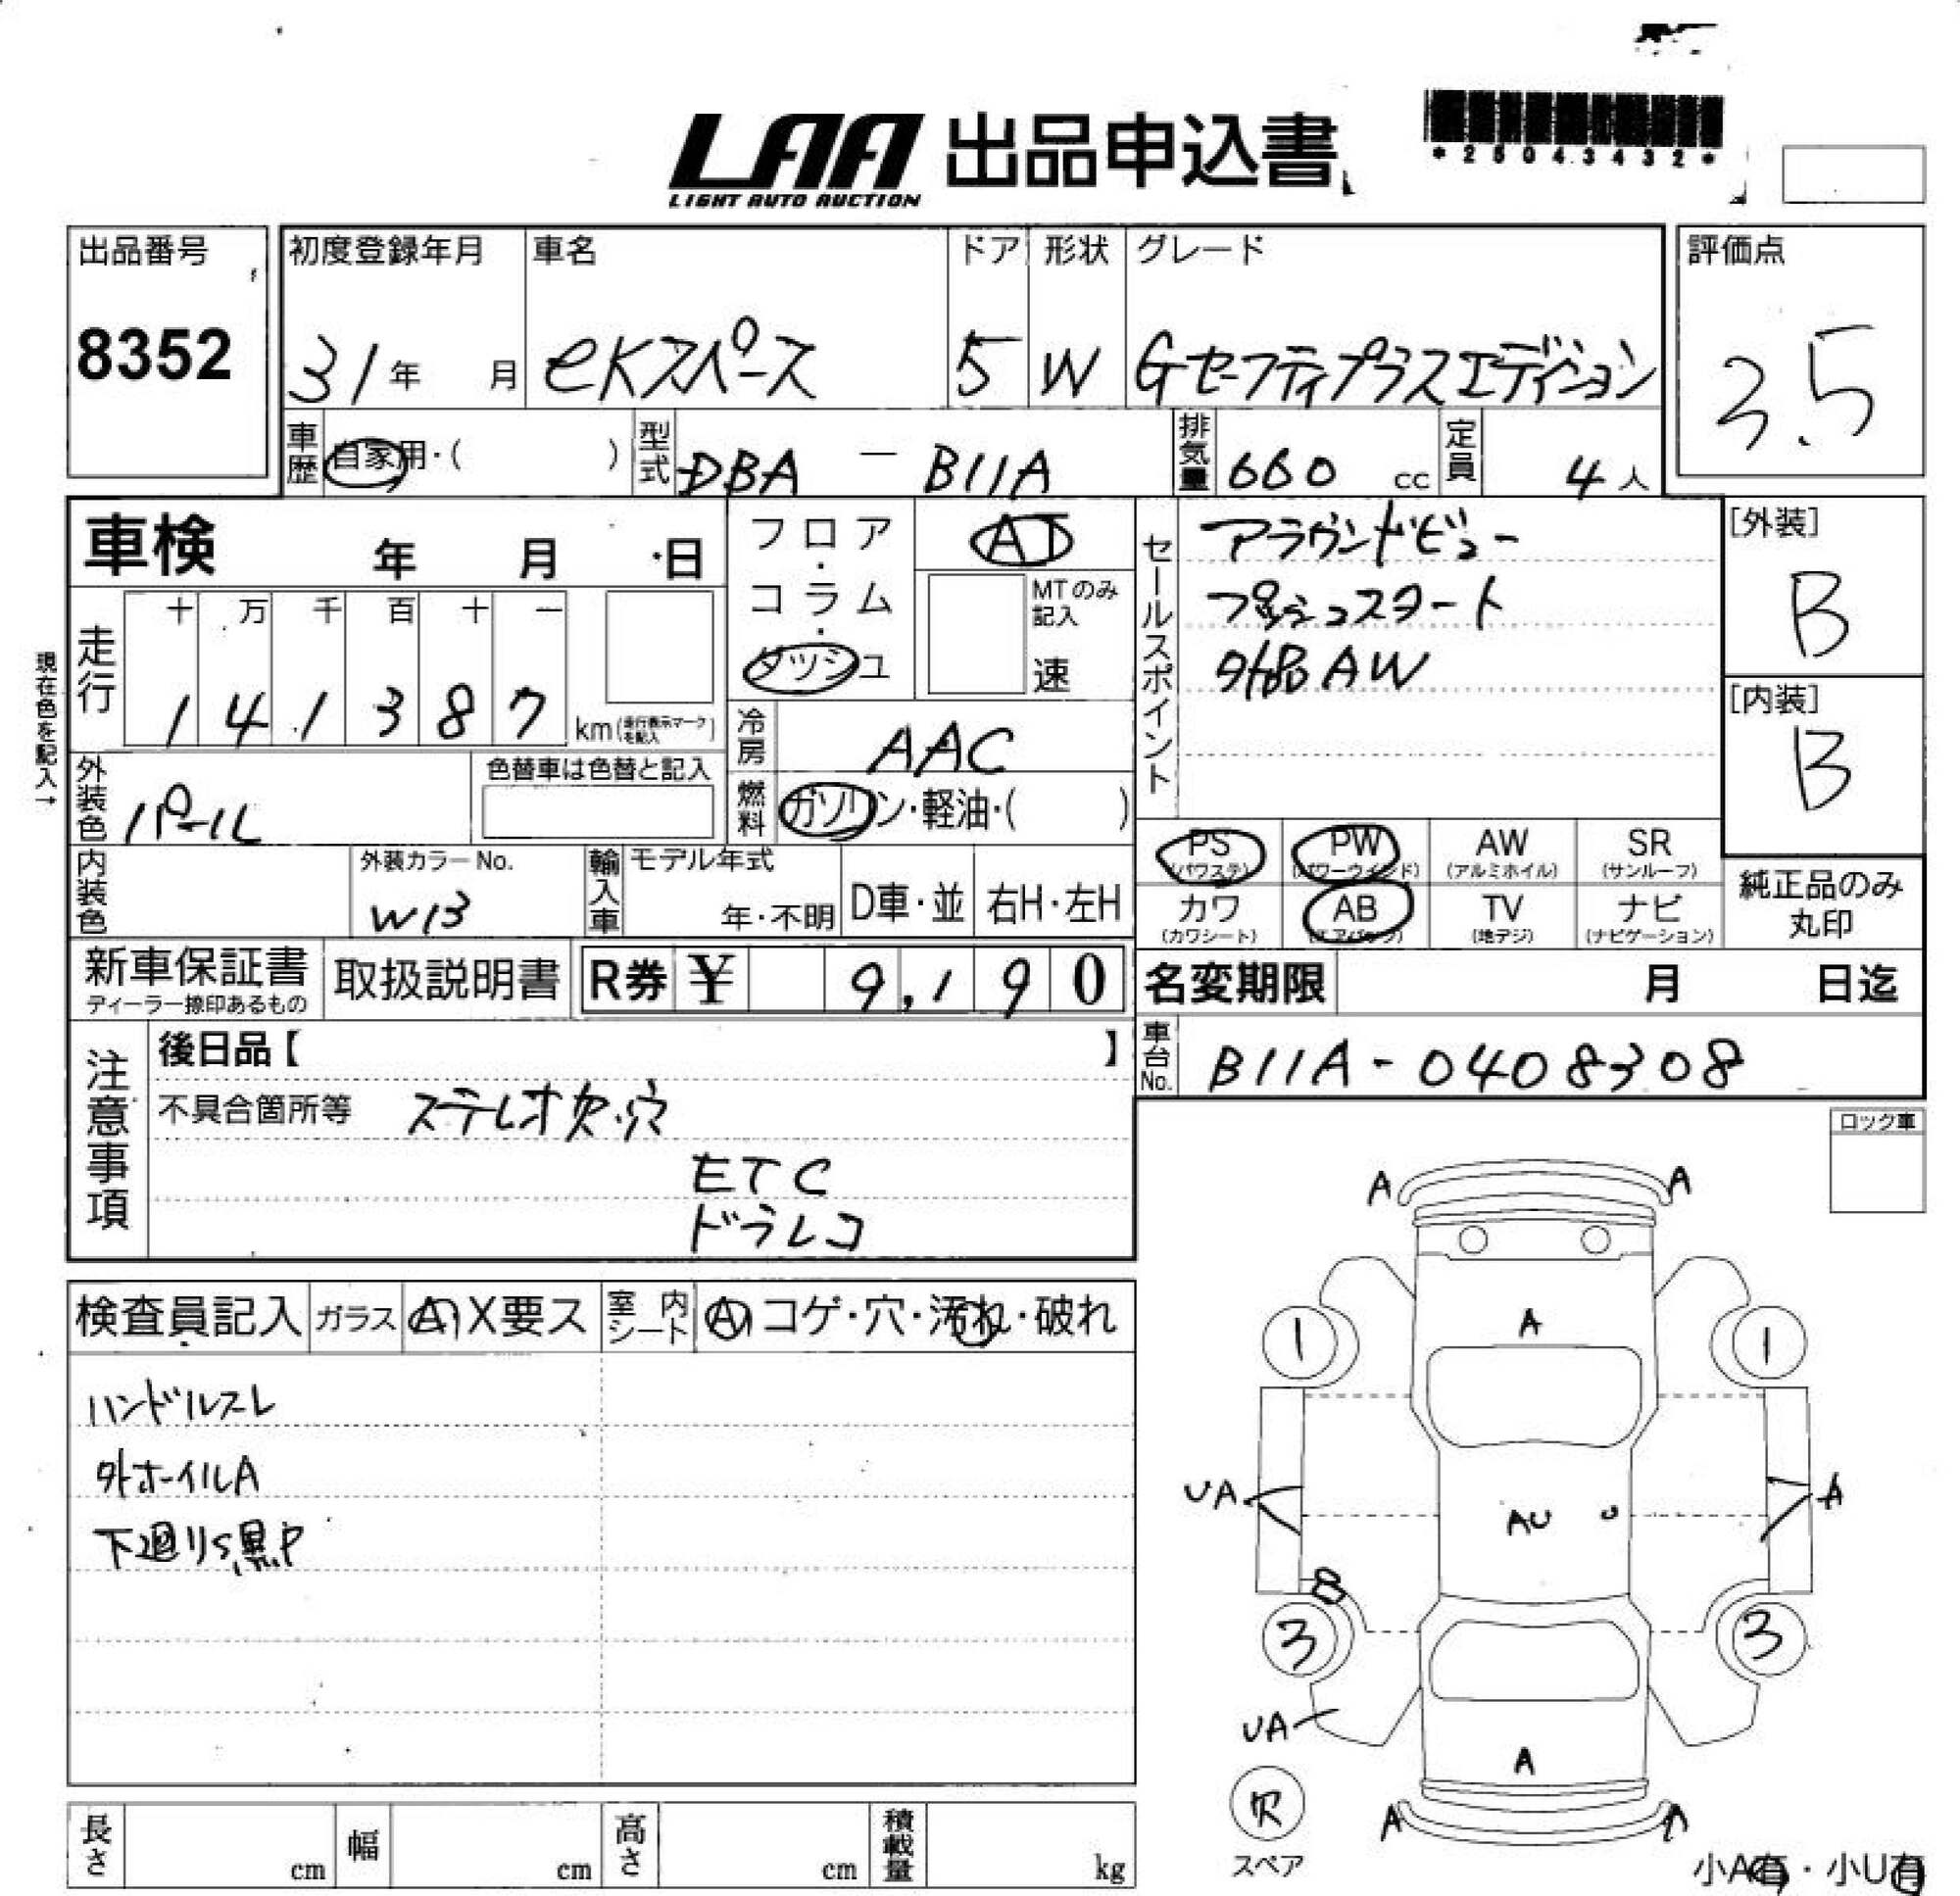 LAA 出品申込書
LIGHT AUTO AUCTION
*25043432*
出品番号
8352
初度登録年月
31年 月
車名
eKスペース
ドア
5
形状
W
グレード
Gセーフティプラスエディション
評価点
3.5
車歴 自家用・( )
型式 DBA － B11A
排気量 660 cc
定員 4人
車検 年 月 日
フロア・コラム・ダッシュ
AT
MTのみ記入
速
セールスポイント
アラウンドビュー
プッシュスタート
外品AW
[外装]
B
[内装]
B
現在色を記入→
走行
十 万 千 百 十 一
1 4 1 3 8 7 km(走行表示マークを記入)
冷房 AAC
燃料 ガソリン・軽油・( )
外装色 パール
色替車は色替と記入
内装色
外装カラーNo.
W13
輸入車 モデル年式
年・不明
D車・並
右H・左H
PS (パワステ)
PW (パワーウインド)
AW (アルミホイル)
SR (サンルーフ)
カワ (カワシート)
AB (エアバック)
TV (地デジ)
ナビ (ナビゲーション)
純正品のみ
丸印
新車保証書
ディーラー捺印あるもの
取扱説明書
R券 ¥ 9,190
名変期限 月 日迄
車台No. B11A-0408308
注意事項
後日品【 】
不具合箇所等 ステレオ欠.穴
ETC
ドラレコ
ロック車
検査員記入
ガラス A X要ス
室内シート A コゲ・穴・汚れ・破れ
ハンドルスレ
外ホイルA
下廻りS,黒P
A A
A
1 1
UA A
AU U
B
3 3
UA
A
欠
スペア
A A
小A有・小U有
長さ cm
幅 cm
高さ cm
積載量 kg